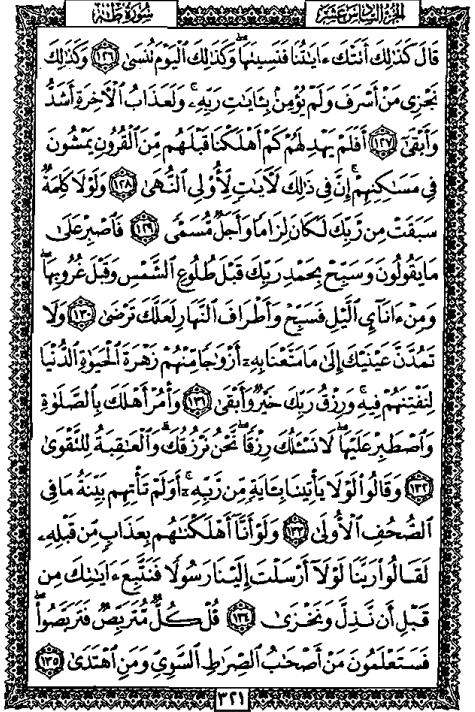 الجزء السادس عشر سورة طه
قَالَ كَذَٰلِكَ أَتَتْكَ ءَايَٰتُنَا فَنَسِيتَهَا ۖ وَكَذَٰلِكَ ٱلْيَوْمَ تُنسَىٰ ١٢٦ وَكَذَٰلِكَ
نَجْزِى مَنْ أَسْرَفَ وَلَمْ يُؤْمِنۢ بِـَٔايَٰتِ رَبِّهِۦ ۚ وَلَعَذَابُ ٱلْءَاخِرَةِ أَشَدُّ
وَأَبْقَىٰٓ ١٢٧ أَفَلَمْ يَهْدِ لَهُمْ كَمْ أَهْلَكْنَا قَبْلَهُم مِّنَ ٱلْقُرُونِ يَمْشُونَ
فِى مَسَٰكِنِهِمْ ۗ إِنَّ فِى ذَٰلِكَ لَءَايَٰتٍ لِّأُو۟لِى ٱلنُّهَىٰ ١٢٨ وَلَوْلَا كَلِمَةٌ
سَبَقَتْ مِن رَّبِّكَ لَكَانَ لِزَامًا وَأَجَلٌ مُّسَمًّى ١٢٩ فَٱصْبِرْ عَلَىٰ
مَا يَقُولُونَ وَسَبِّحْ بِحَمْدِ رَبِّكَ قَبْلَ طُلُوعِ ٱلشَّمْسِ وَقَبْلَ غُرُوبِهَا ۖ
وَمِنْ ءَانَآئِ ٱلَّيْلِ فَسَبِّحْ وَأَطْرَافَ ٱلنَّهَارِ لَعَلَّكَ تَرْضَىٰ ١٣٠ وَلَا
تَمُدَّنَّ عَيْنَيْكَ إِلَىٰ مَا مَتَّعْنَا بِهِۦٓ أَزْوَٰجًا مِّنْهُمْ زَهْرَةَ ٱلْحَيَوٰةِ ٱلدُّنْيَا
لِنَفْتِنَهُمْ فِيهِ ۚ وَرِزْقُ رَبِّكَ خَيْرٌ وَأَبْقَىٰ ١٣١ وَأْمُرْ أَهْلَكَ بِٱلصَّلَوٰةِ
وَٱصْطَبِرْ عَلَيْهَا ۖ لَا نَسْـَٔلُكَ رِزْقًا ۖ نَّحْنُ نَرْزُقُكَ ۗ وَٱلْعَٰقِبَةُ لِلتَّقْوَىٰ
١٣٢ وَقَالُوا۟ لَوْلَا يَأْتِينَا بِـَٔايَةٍ مِّن رَّبِّهِۦٓ ۚ أَوَلَمْ تَأْتِهِم بَيِّنَةُ مَا فِى
ٱلصُّحُفِ ٱلْأُولَىٰ ١٣٣ وَلَوْ أَنَّآ أَهْلَكْنَٰهُم بِعَذَابٍ مِّن قَبْلِهِۦ
لَقَالُوا۟ رَبَّنَا لَوْلَآ أَرْسَلْتَ إِلَيْنَا رَسُولًا فَنَتَّبِعَ ءَايَٰتِكَ مِن
قَبْلِ أَن نَّذِلَّ وَنَخْزَىٰ ١٣٤ قُلْ كُلٌّ مُّتَرَبِّصٌ فَتَرَبَّصُوا۟ ۖ
فَسَتَعْلَمُونَ مَنْ أَصْحَٰبُ ٱلصِّرَٰطِ ٱلسَّوِىِّ وَمَنِ ٱهْتَدَىٰ ١٣٥
٣٢١